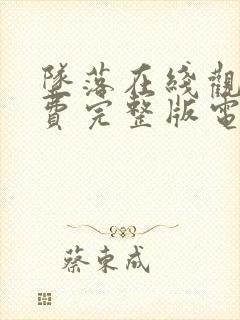 墜落在綫觀
費完整版電
蔡東成